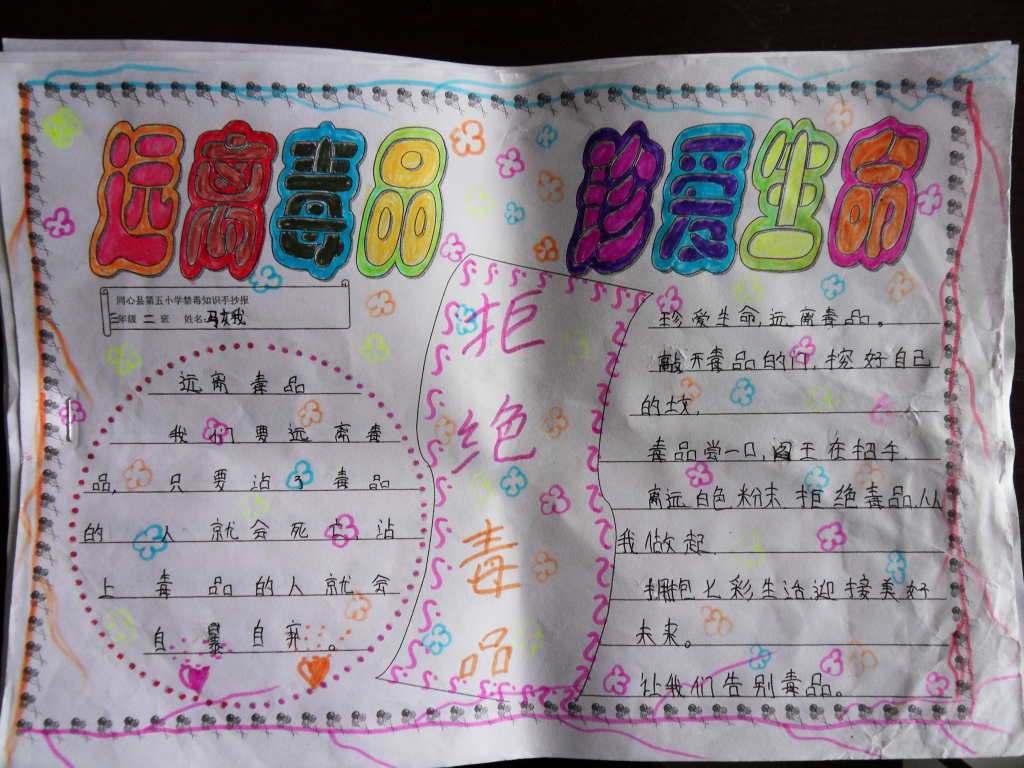 远离毒品
珍爱生命
同心县第五小学禁毒知识手抄报
三年级 二 班 姓名:马
远离毒品
我们要远离毒
品,只要沾了毒品
的人就会死亡沾
上毒品的人就会
自暴自弃。
拒
绝
毒
品
珍爱生命,远离毒品。
敲开毒品的门,挖好自己
的坟.
毒品尝一口,阎王在招手.
离远白色粉末 拒绝毒品从
我做起.
拥抱七彩生活迎接美好
未来。
让我们告别毒品。